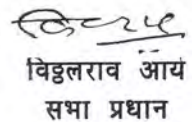 विठ्ठलराव आर्य
सभा प्रधान